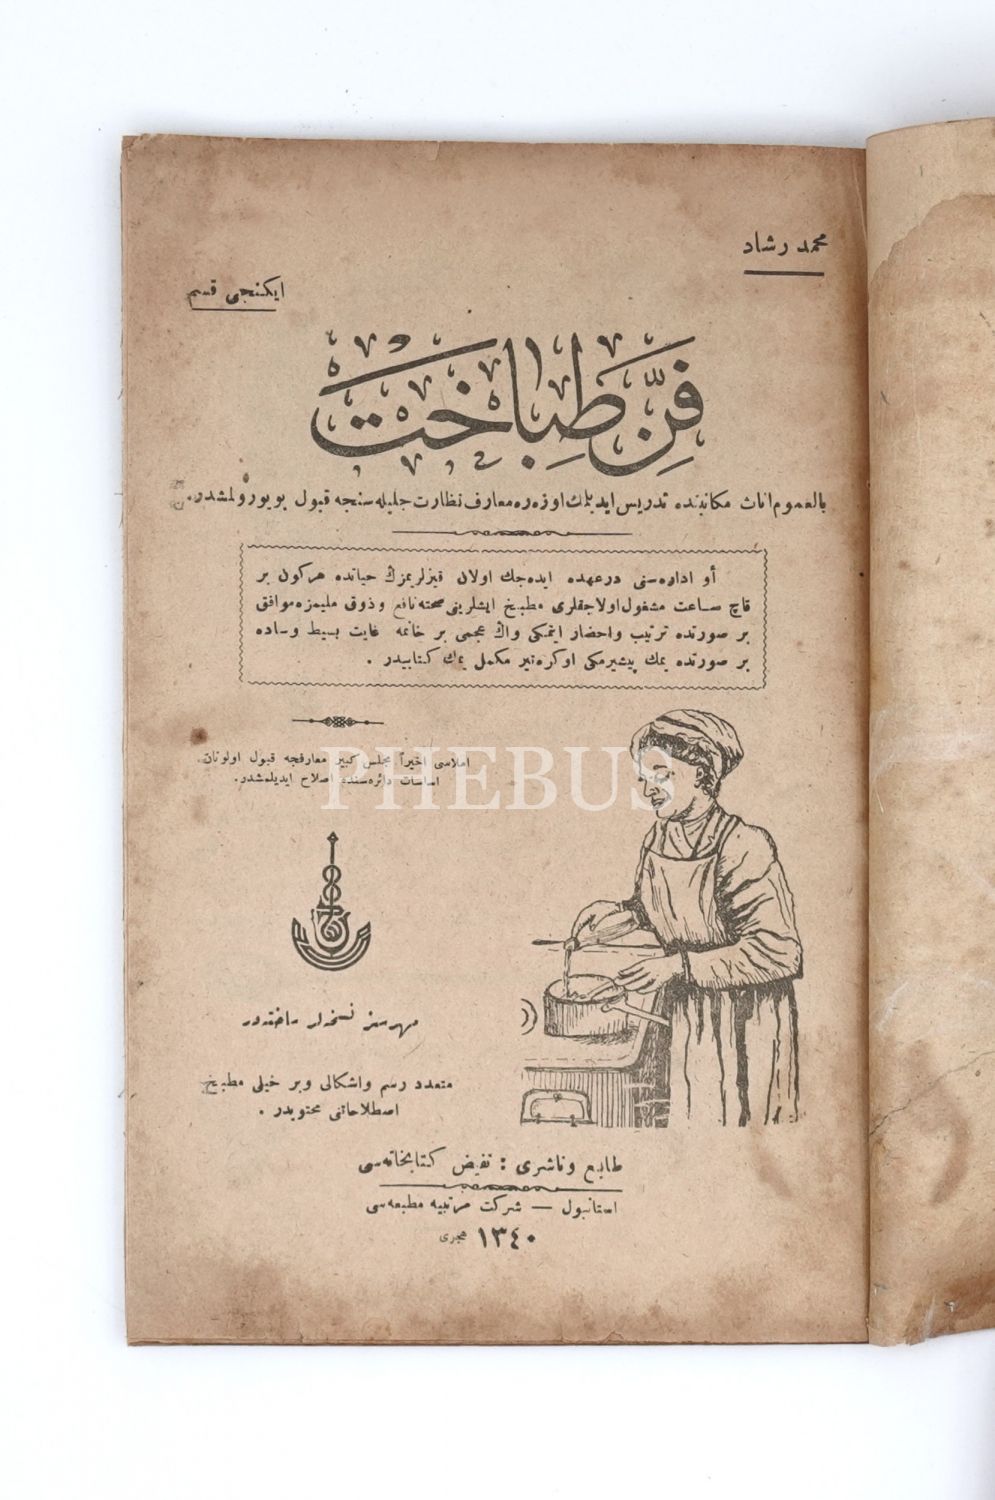 محمد رشاد
ایكنجی قسم
فنّ طباخت
بالعموم اناث مكاتبنده تدریس ایدیلمك اوزره معارف نظارت جلیله سنجه قبول بویورولمشدر.
أو اداره‌سنی درعهده ایده‌جك اولان قیزلریمزڭ حیاتده هركون بر
قاچ ساعت مشغول اولاجقلری مطبخ ایشلرینی صحته نافع و ذوق ملیمزه موافق
بر صورتده ترتیب واحضار ایتمكی واڭ عجمی بر خانمه غایت بسیط وساده
بر صورتده یمك پیشیرمكی اوكره‌تیر مكمل یمك كتابیدر .
املاسی اخیراً مجلس كبیر معارفجه قبول اولونان
اساسات دائره‌سنده اصلاح ایدیلمشدر.
PHEBUS
مهرسز نسخه‌لر ساخته‌در
متعدد رسم واشكالی وبر خیلی مطبخ
اصطلاحاتنی محتویدر .
طابع و ناشری : تفیض كتابخانه‌سی
استانبول — شركت مرتبیه مطبعه‌سی
١٣٤٠ هجری